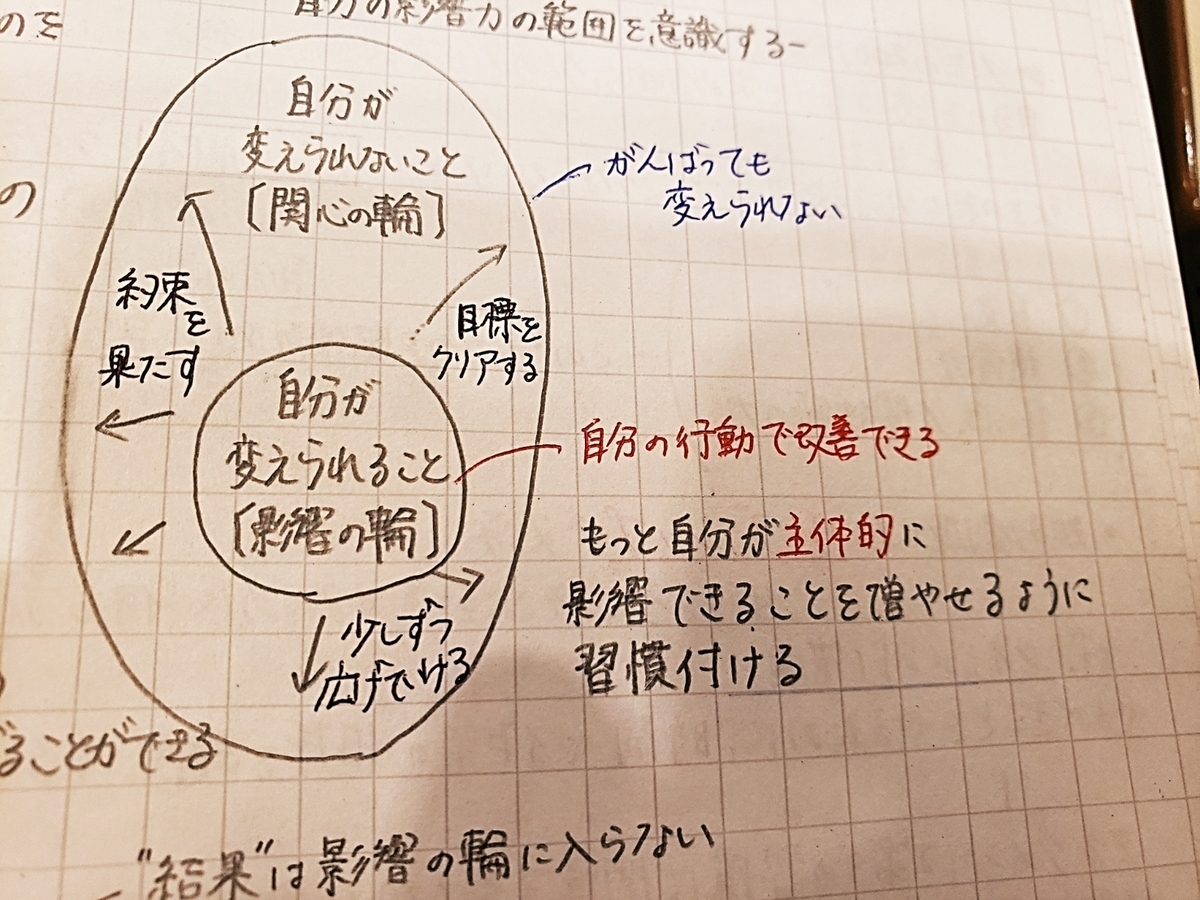 のを
自分の影響力の範囲を意識するー
自分が
変えられないこと
[関心の輪]
がんばっても
変えられない
の
約束
を
果たす
目標を
クリアする
自分が
変えられること
[影響の輪]
自分の行動で改善できる
もっと自分が主体的に
影響できることを増やせるように
習慣付ける
少しずつ
広げていける
ることができる
"結果"は影響の輪に入らない